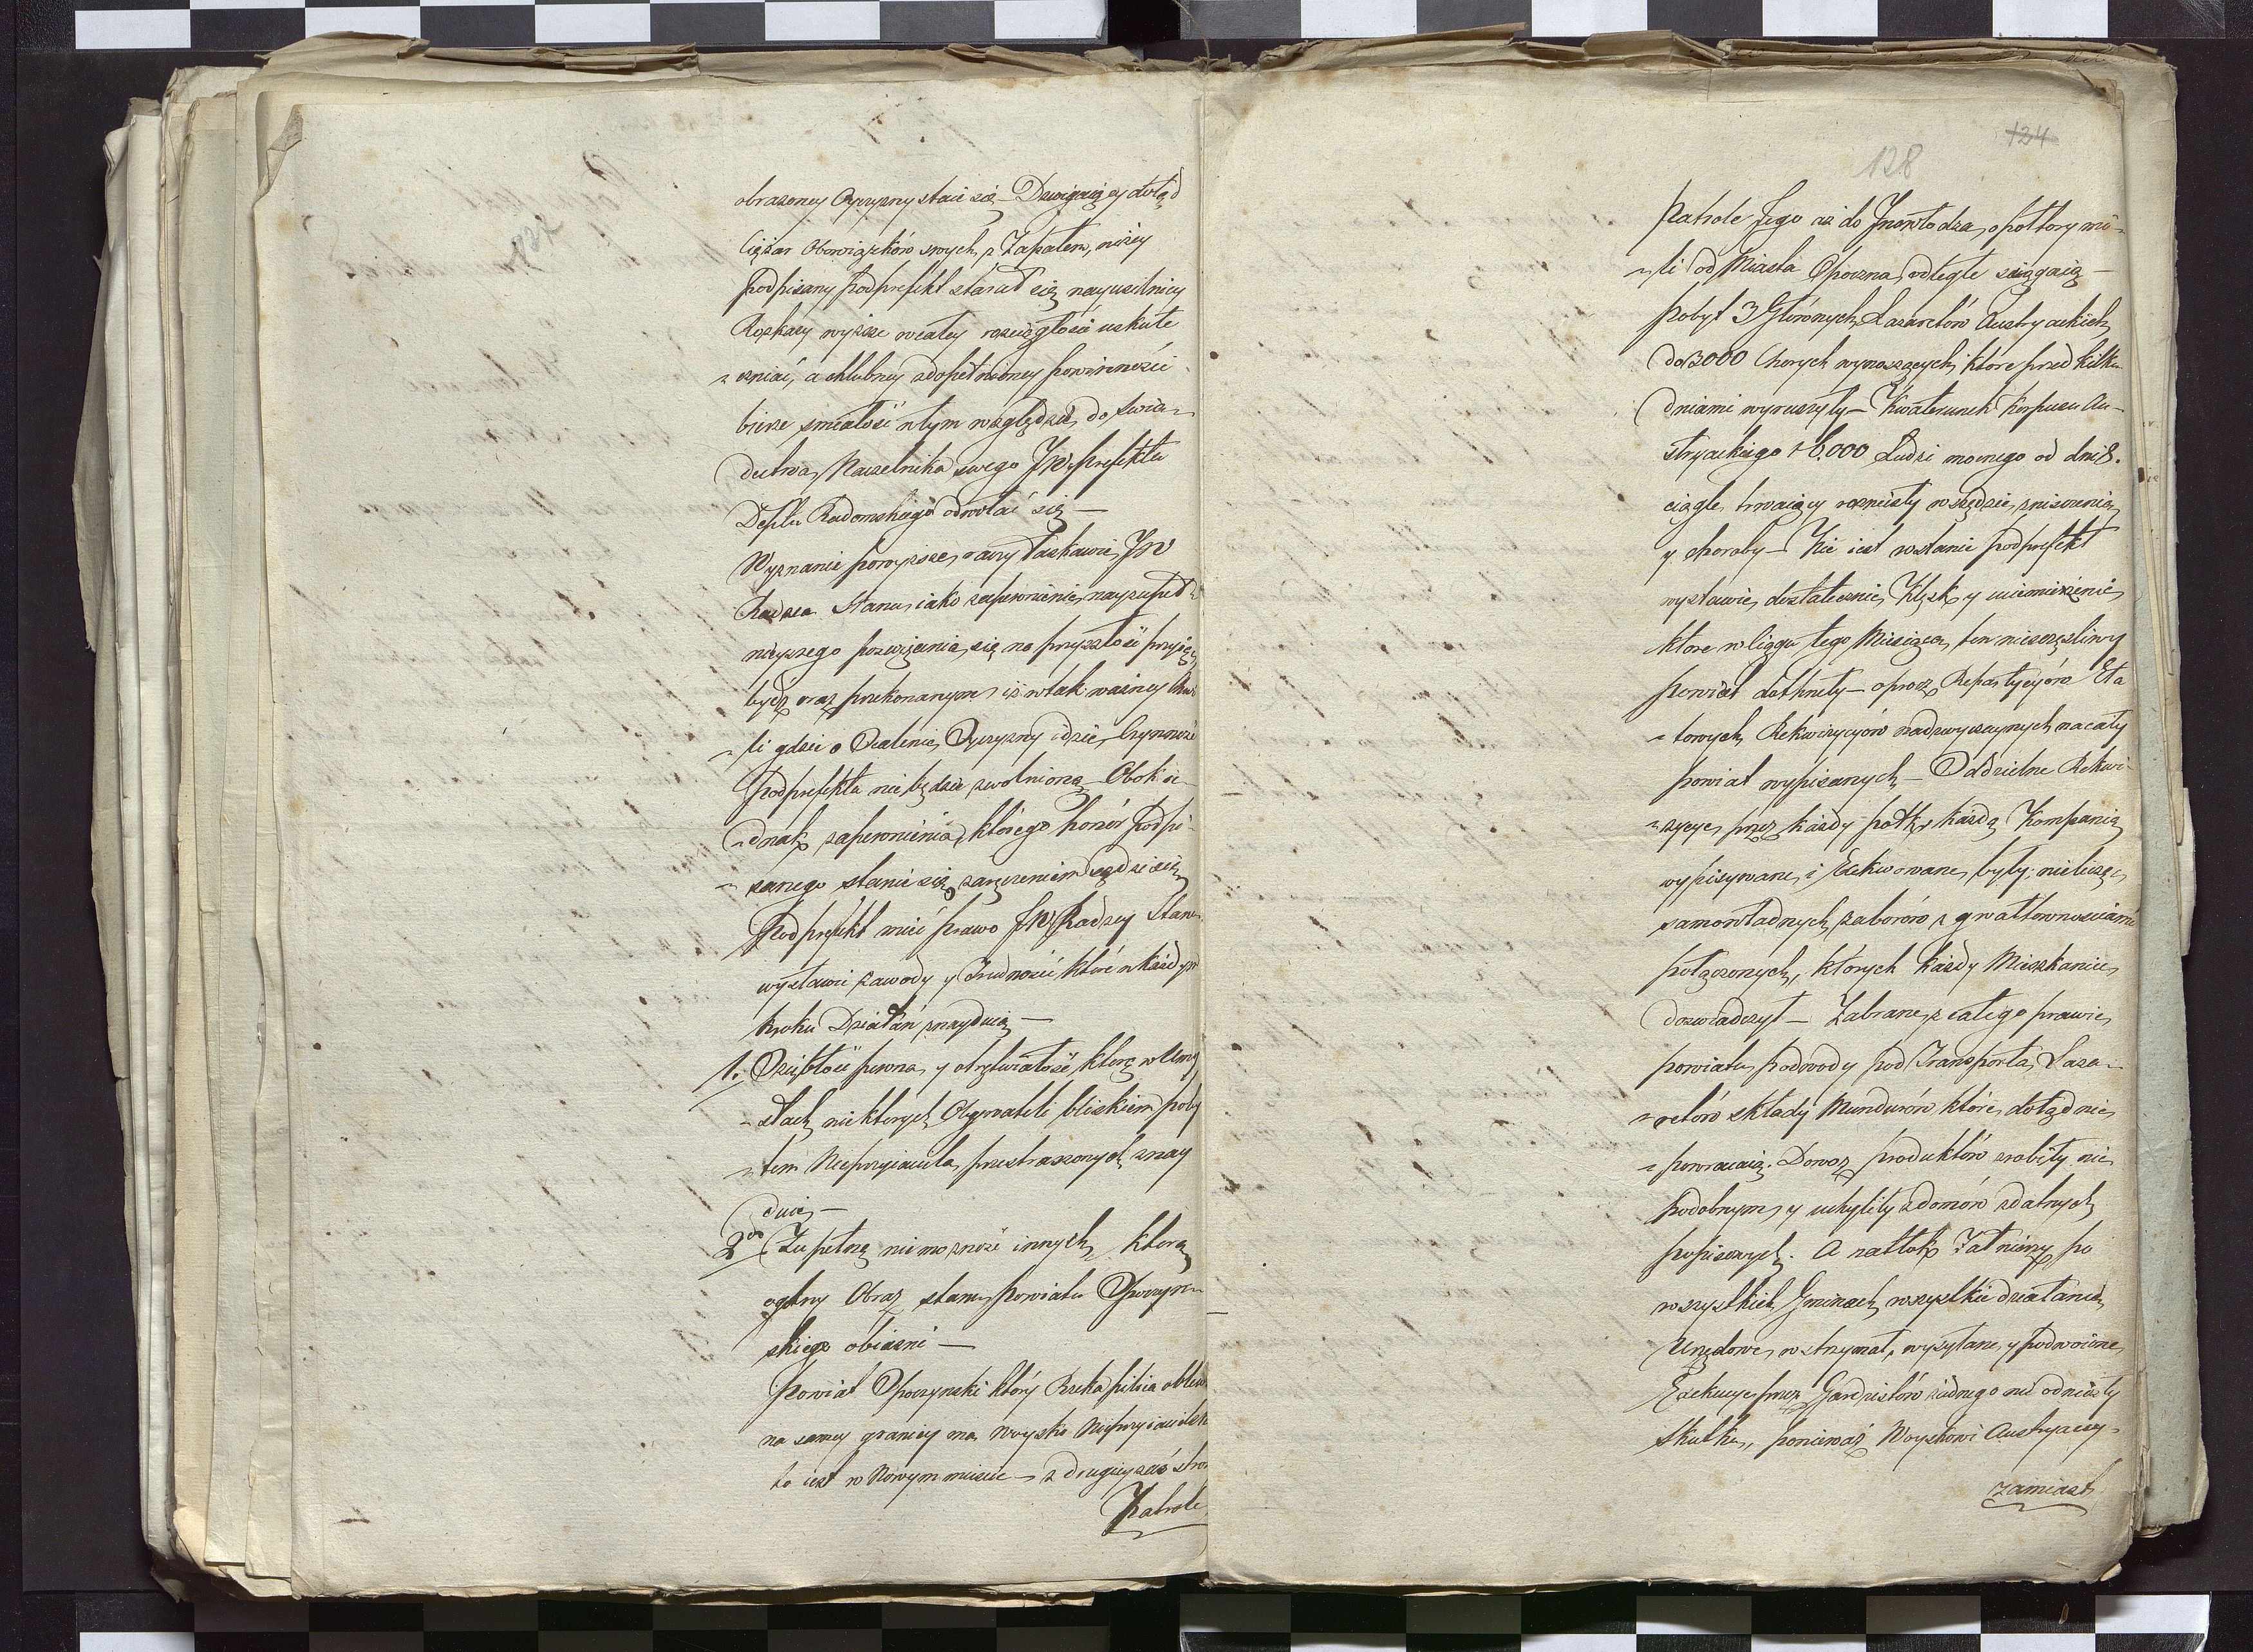 127
obrazoney Oyczyzny stacie się – Dzwigaiący dotąd
Ciężar Obowiązków swych z Zapałem, niżey
Podpisany Podprefekt starał się nayusilniey
Rozkazy wyższe w całey rozciągłości uskute
czniać, a chlubney z dopełnioney powinności
bierze smiałość w tym względzie do swia-
dectwa Naczelnika swego JW. Prefekta
Deptu Radomskiego odwołać się –
Wyznanie powyższe raczy łaskawie JW
Radzca Stanu iako zapewnienie nayzupeł-
nieyszego poswięcenia się na przyszłość przyiąć
bydź oraz przekonanym iż w tak ważney Chwi
li gdzie o Ocalenie Oyczyzny idzie, Czynność
Podprefekta nie będzie zwolnioną – Obok ie-
dnak zapewnienia, którego honor Podpi-
sanego stanie się zaręczeniem sądzi się
Podprefekt mieć prawo JW. Radzcy Stanu
wystawić zawody y Trudności które w każdym
kroku Działań znayduią –
1. Oziębłość pewna y otrętwiałość którą w Umy
słach niektórych Obywateli bliskiem poby
tem Nieprzyiaciela przestraszonych znay
duię –
2do Zupełną niemożność innych, którą
ogólny Obraz stanu Powiatu Opoczyn
skiego obiaśni –
Powiat Opoczynski który Rzeka pilica oblewa
na samey granicy ma Woysko Nieprzyiacielskie
to iest w Nowym mieście – z drugiey zaś stro
Patrole
124
128
Patrole Jego aż do Jnowłodza, o półtory mi-
li od Miasta Opoczna odległe siągaią –
Pobyt 3 Głównych Lazaretów Austryackich
do 3000 Chorych wynoszących, które przed kilku
dniami wyruszyły – Kwaterunek Korpusu Au-
stryackiego 16.000 Ludzi mocnego od dni 8.
ciągle trwaiący rozniosły wszędzie zniszczenia
y choroby – Nie iest w stanie Podprefekt
wystawić dostatecznie Klęsk y uciemiężenie
które w Ciągu tego Miesiąca ten nieszczęśliwy
powiat dotknęły – oprocz Repartycyów Eta
towych, Rekwizycyów nadzwyczaynych na cały
powiat wypisanych – Oddzielne Rekwi-
zycye przez każdy pułk, każdą Kompanią
wypisywane i Exekwowane były; nie licząc
samowładnych zaborów z gwałtownosciami
połączonych, których każdy Mieszkaniec
doświadczył – Zabrane z całego prawie
powiatu podwody pod Transporta, Laza-
retów składy Mundurów które dotąd nie
powracaią. Dowoz produktów zrobiły nie
podobnym y uchyliły z domów zdatnych
popisowych. A natłok Żołnierzy po
wszystkich Gminach wszystkie działania
Urzędowe wstrzymał, wysyłane y podwoione
Exekucye przez Gardzistów żadnego nie odniosły
Skutku, ponieważ Woyskowi Austryaccy
zamiast